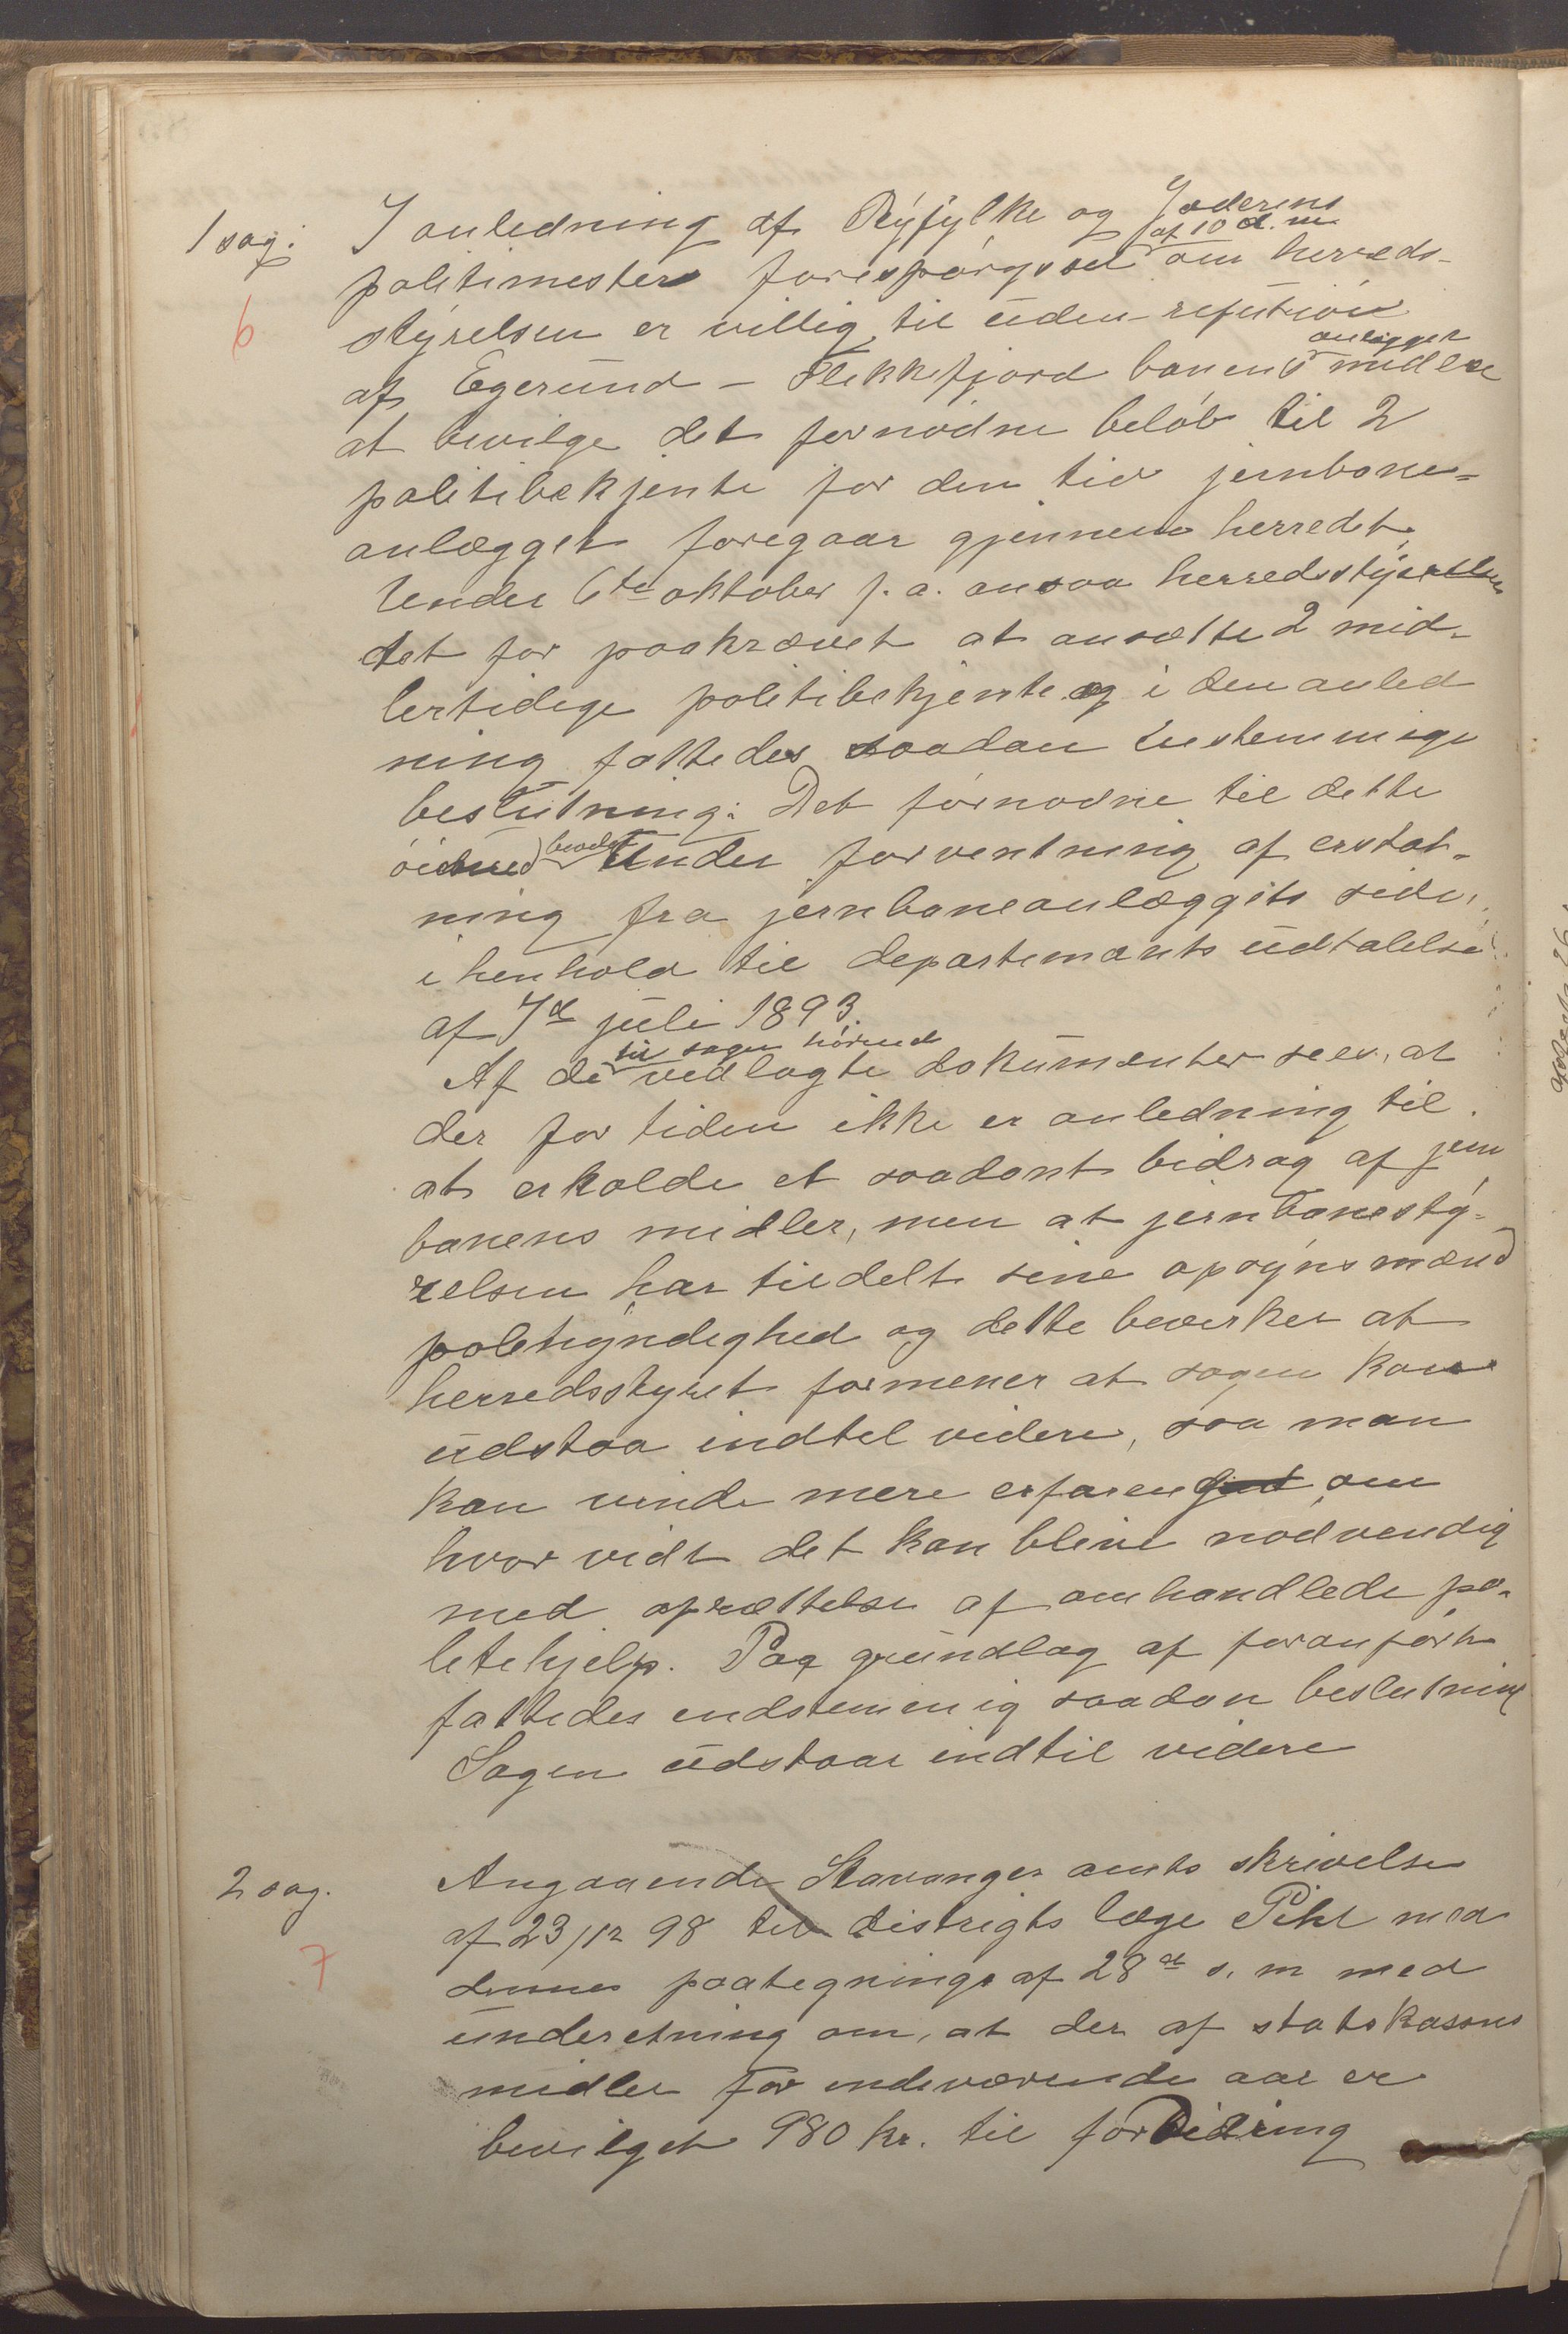 1 sag:
I anledning af Ryfylke og Jæderens
politimesters forespørgssel af 10 d. m. om herreds-
6
styrelsen er villig til uden refution
af Egersund - Flekkefjord banens anlægget midler
at bevilge det fornødne beløb til 2
politibekjente for den tid jernbane-
anlægget foregaar gjennem herredet.
Under 6te oktober f. a. ansaa herredsstyrelsen
det for paakrævet at ansætte 2 mid-
lertidige politibekjente og i den anled
ning fattedes saadan enstemmige
beslutning: Det fornødne til dette
under forventning af erstat-
ning fra jernbaneanlæggets side,
i henhold til departements udtalelse
af 7de juli 1893.
Af de til sagen hørend vedlagte dokumenter sees, at
der for tiden ikke er anledning til
at erholde et saadant bidrag af jern
banens midler, men at jernbanesty-
relsen har tildelt sine opsynsmænd
politigndighed og dette bevirker at
herredsstyret formener at sagen kan
udstaa indtil videre, saa man
kan vinde mere erfaren om
hvorvidt det kan blive nødvendig
med oprettelse af omhandlede po-
letihjelp. Paa grundlag af foranførte
fattedes endstemmig saadan beslutning
Sagen udstaar indtil videre
2 sag.
Angaaende Stavanger amts skrivelse
af 23/12 98 til distrigts læge Pihl med
7
dennes paategnings af 28de s. m med
underetning om, at der af statskassens
midler for indeværende aar er
bevilget 980 kr. til forbidring